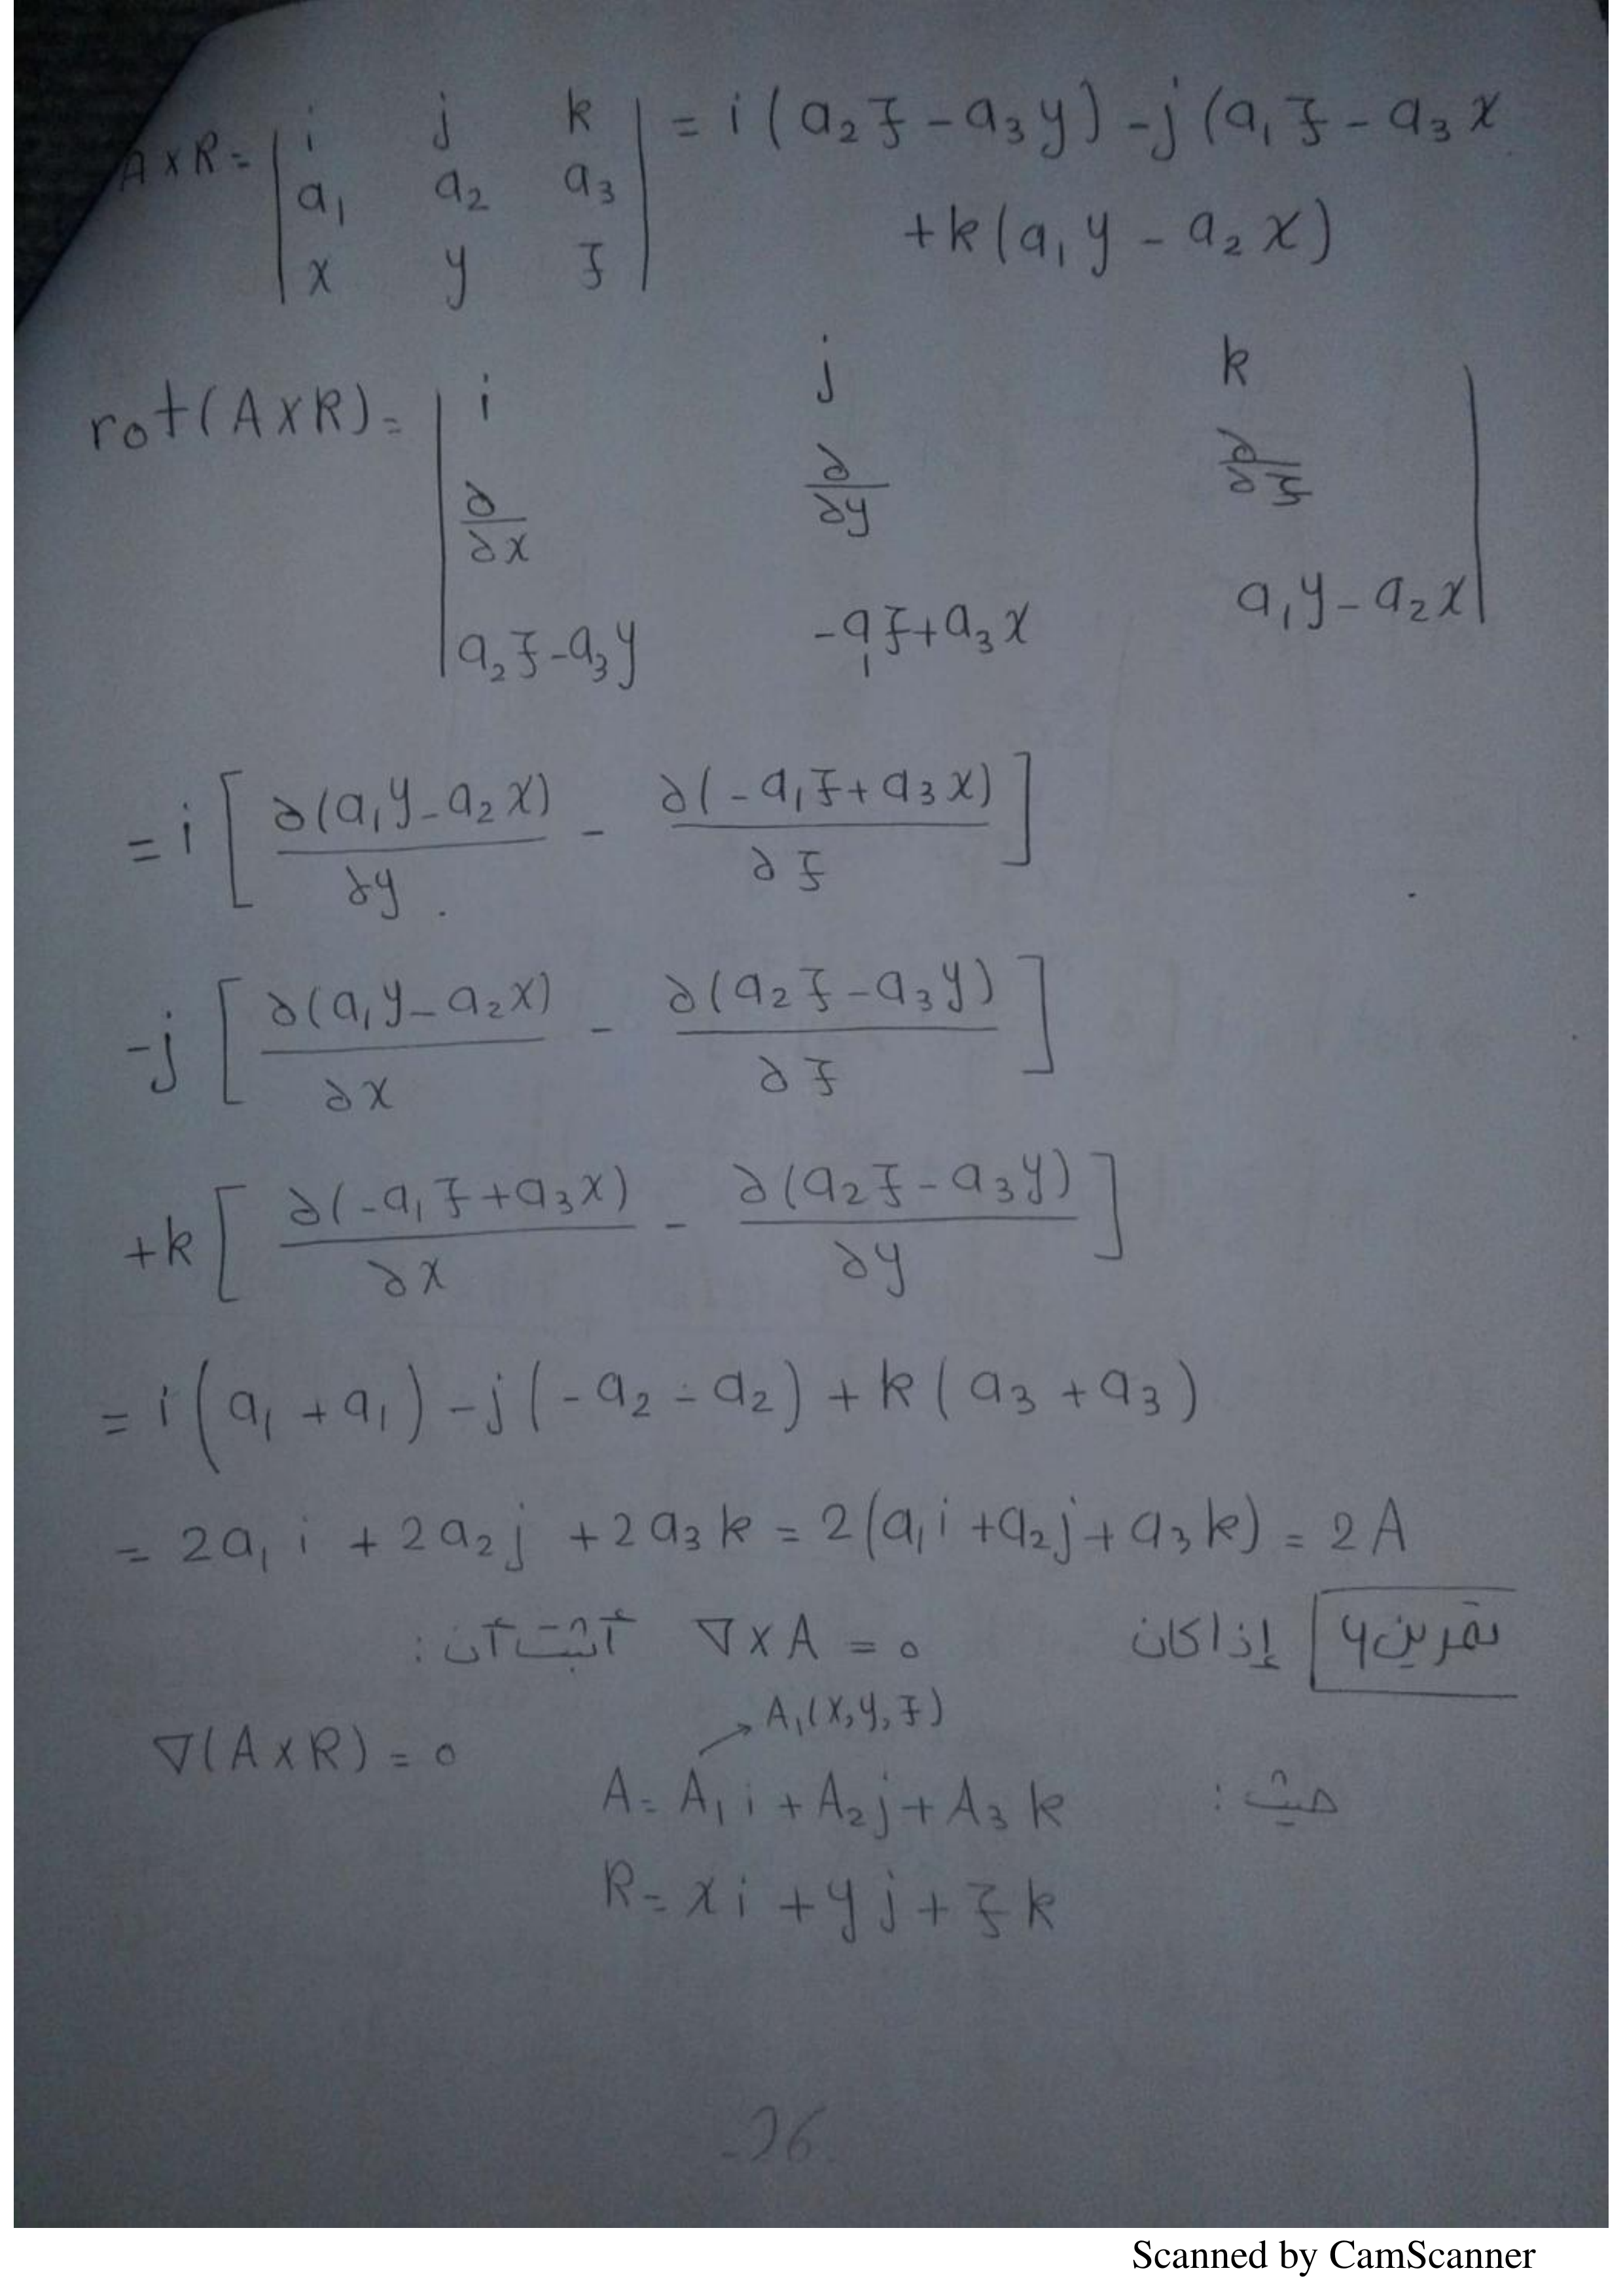 A×R= | i j k | = i(a₂z-a₃y)-j(a₁z-a₃x
a₁ a₂ a₃
x y z
+k(a₁y-a₂x)
rot(A×R)= | i j k |
∂/∂x ∂/∂y ∂/∂z
a₂z-a₃y -a₁z+a₃x a₁y-a₂x
= i [ ∂(a₁y-a₂x)/∂y - ∂(-a₁z+a₃x)/∂z ]
-j [ ∂(a₁y-a₂x)/∂x - ∂(a₂z-a₃y)/∂z ]
+k [ ∂(-a₁z+a₃x)/∂x - ∂(a₂z-a₃y)/∂y ]
= i(a₁+a₁)-j(-a₂-a₂)+k(a₃+a₃)
= 2a₁i+2a₂j+2a₃k=2(a₁i+a₂j+a₃k)=2A
تمرين ٦ إذا كان ∇×A=0 أثبت أن:
A₁(x,y,z)
∇(A×R)=0
حيث: A=A₁i+A₂j+A₃k
R=xi+yj+zk
-26
Scanned by CamScanner